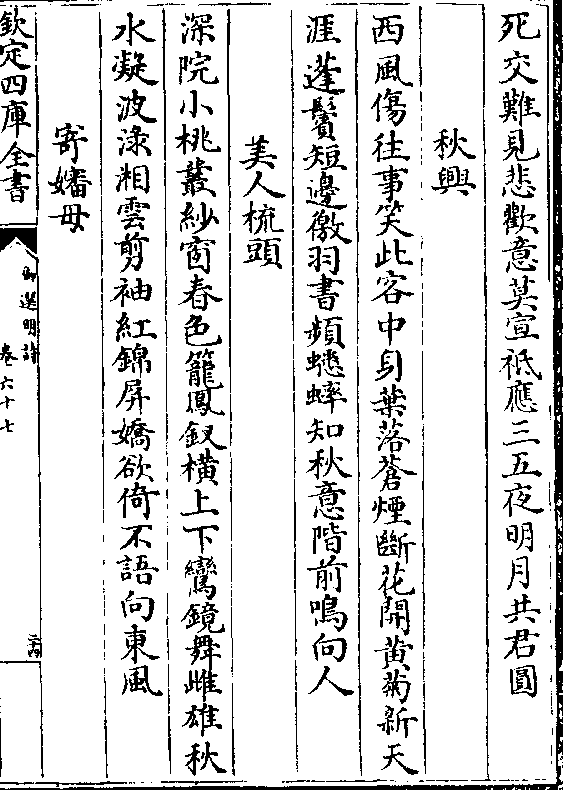 死交難見悲歡意莫宣祗應三五夜明月共君圓
秋興
西風傷往事笑此客中身葉落蒼煙斷花開黄菊新天
涯蓬鬢短邊徼羽書頻蟋蟀知秋意階前鳴向人
美人梳頭
深院小桃叢紗窗春色籠鳳釵橫上下鸞鏡舞雌雄秋
水凝波淥湘雲剪袖紅錦屏嬌欲倚不語向東風
寄嬸母
欽定四庫全書
御選明詩
卷六十七
二十六